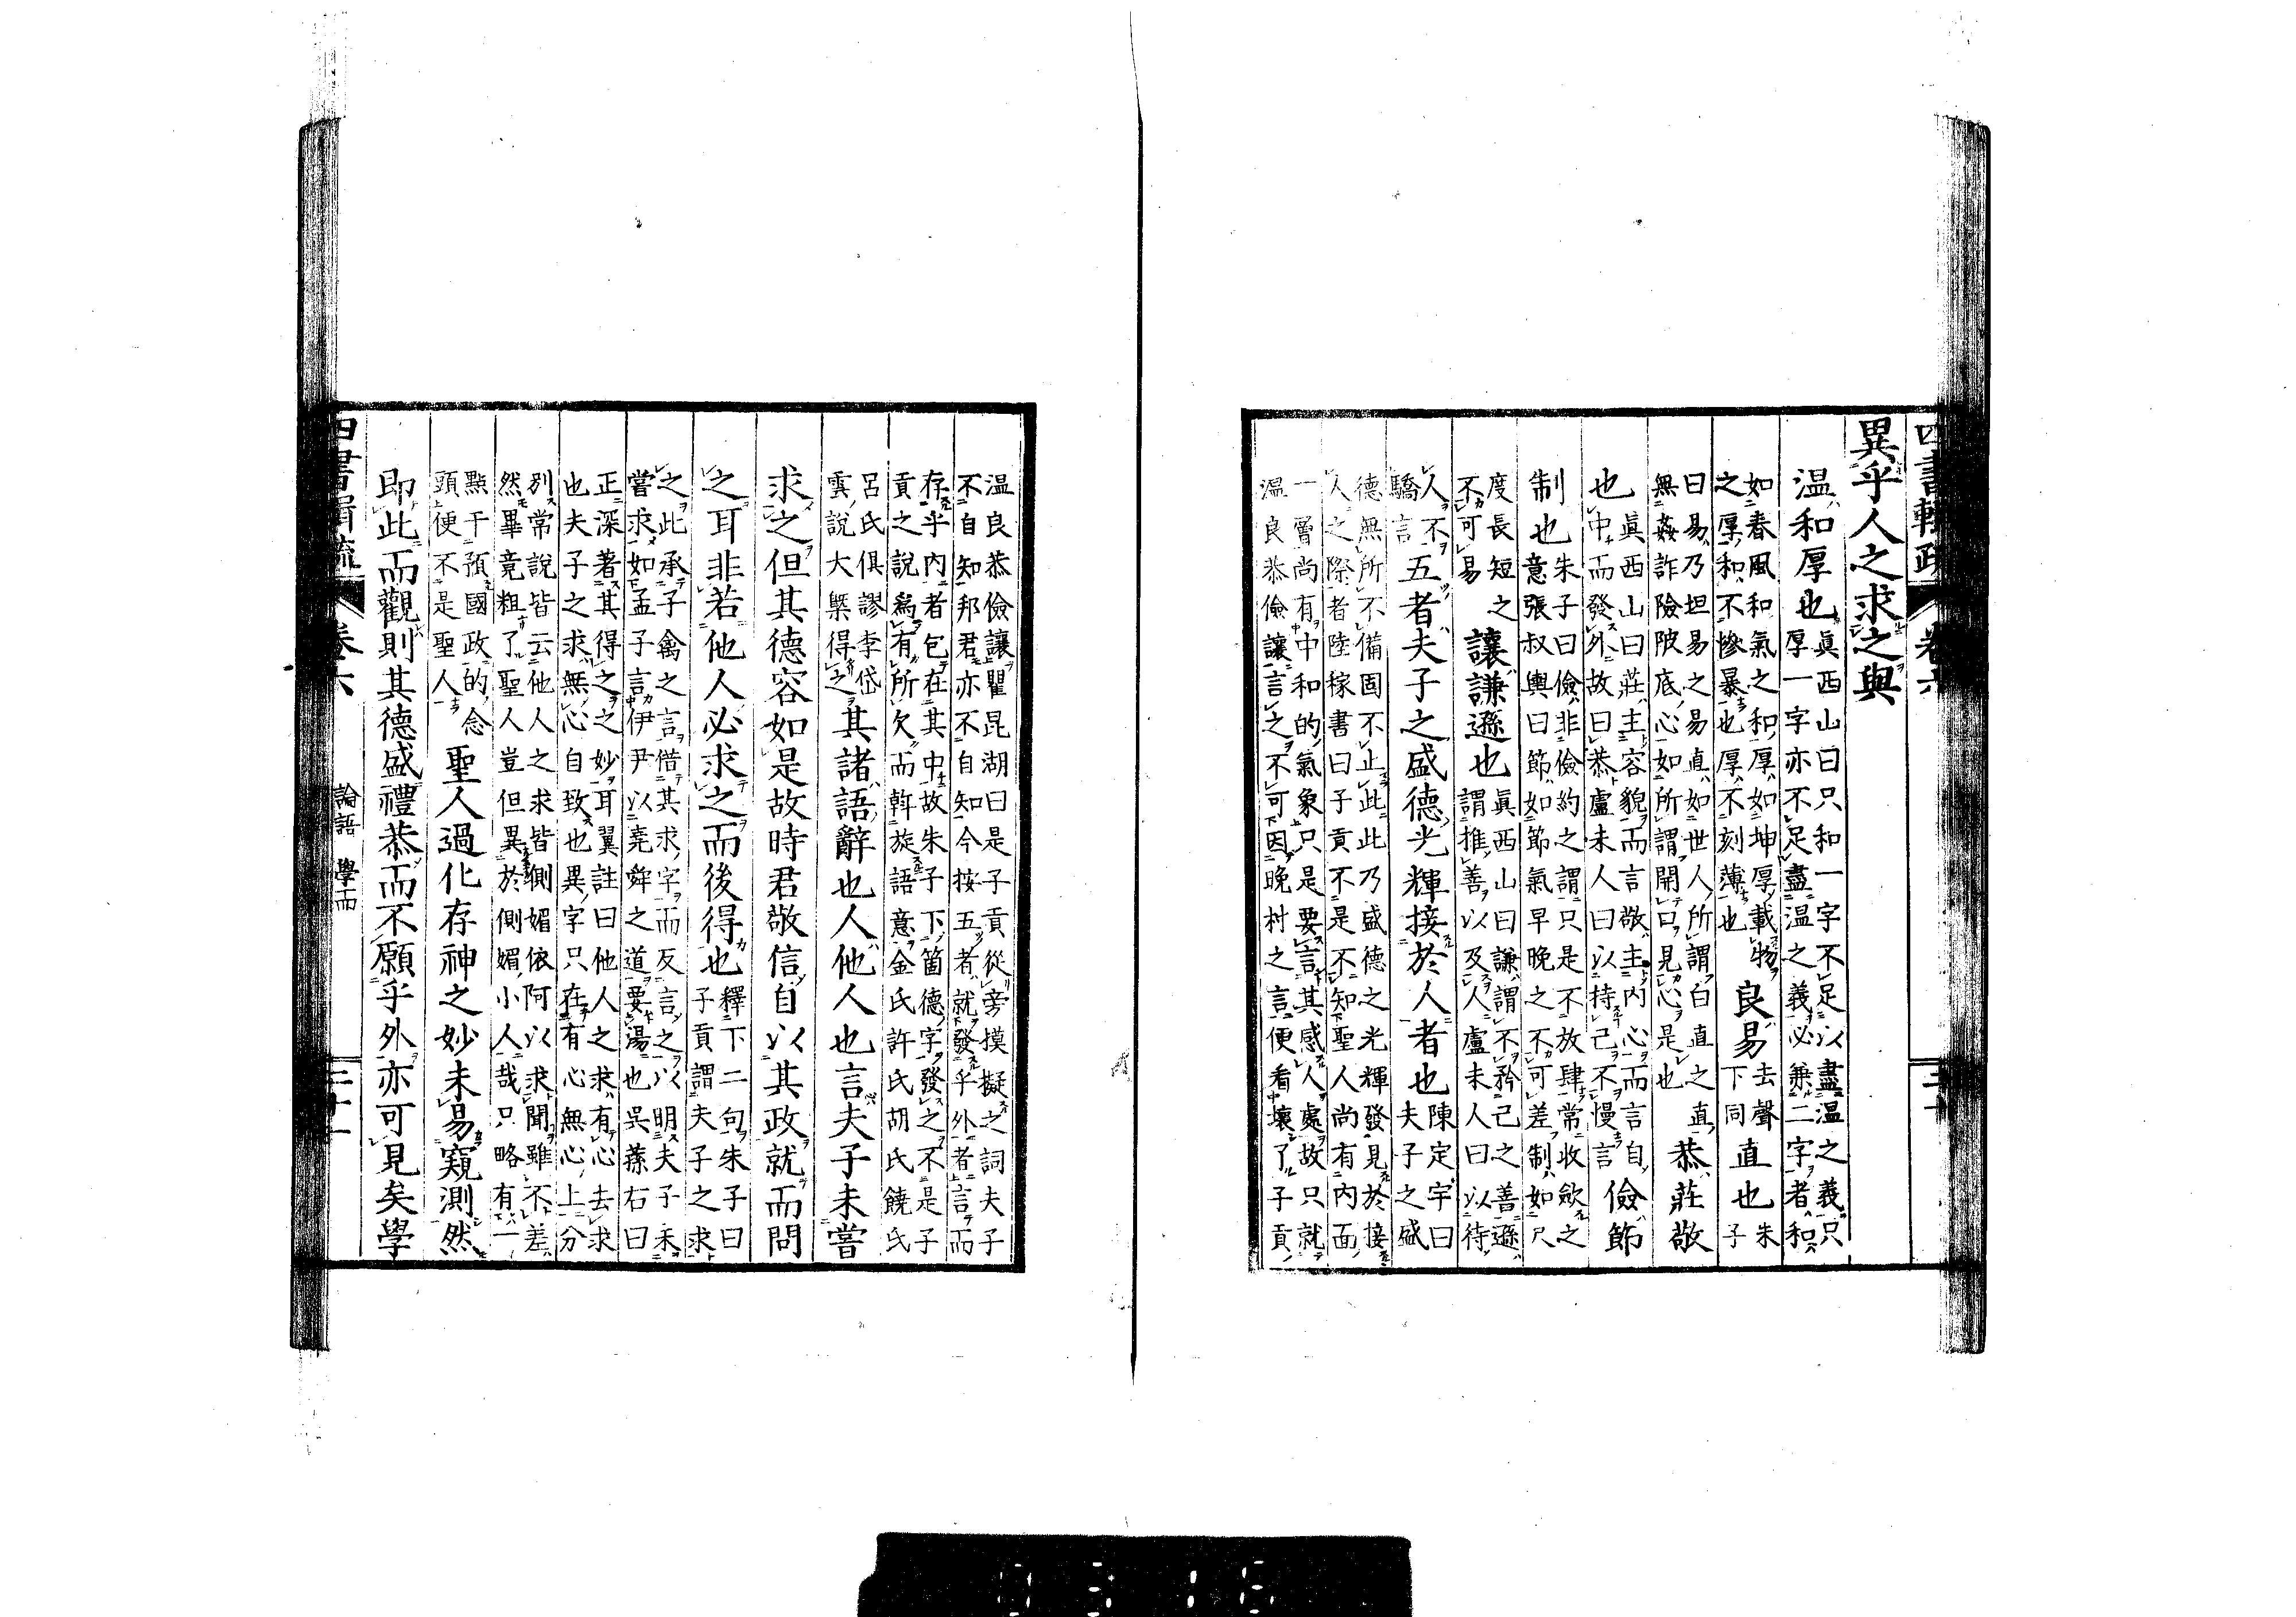 四書輯疏 卷六 三十
異乎人之求之與
溫和厚也
眞西山曰只和一字不足以盡溫之義只
厚一字亦不足盡溫之義必兼二字者和
如春風和氣之和厚如坤厚載物
之厚和不慘暴也厚不刻薄也
良易
去聲
下同
直也
朱
子
曰易乃坦易之易直如世人所謂白直之直
無姦詐險陂底心如所謂開口見心是也
恭莊敬
也
眞西山曰莊主容貌而言敬主內心而言自
中而發外故曰恭盧未人曰以持己不慢言
儉節
制也
朱子曰儉非儉約之謂只是不放肆常收歛之
意張叔輿曰節如節氣早晚之不可差制如尺
度長短之
不可易
讓謙遜也
眞西山曰謙謂不矜己之善遜
謂推善以及人盧未人曰以待
人不
驕言
五者夫子之盛德光輝接於人者也
陳定宇曰
夫子之盛
德無所不備固不止此此乃盛德之光輝發見於接
人之際者陸稼書曰子貢不是不知聖人尚有內面
一層尚有中和的氣象只是要言其感人處故只就
溫良恭儉讓言之不可因晚村之言便看壞了子貢
溫良恭儉讓瞿昆湖曰是子貢從旁摸擬之詞夫子
不自知邦君亦不自知今按五者就發乎外者言而
存乎內者包在其中故朱子下箇德字發之不是子
貢之說爲有所欠而斡旋語意金氏許氏胡氏饒氏
呂氏俱謬李岱
雲說大槩得之
其諸語辭也人他人也言夫子未嘗
求之但其德容如是故時君敬信自以其政就而問
之耳非若他人必求之而後得也
釋下二句朱子曰
子貢謂夫子之求
之此承子禽之言借其求字而反言之以明夫子未
嘗求如孟子言伊尹以堯舜之道要湯也吳蓀右曰
正深著其得之之妙耳翼註曰他人之求有心去求
也夫子之求無心自致也異字只在有心無心上分
別常說皆云他人之求皆側媚依阿以求聞雖不差
然畢竟粗了聖人豈但異於側媚小人哉只略有一
點干預國政的念
頭便不是聖人
聖人過化存神之妙未易窺測然
即此而觀則其德盛禮恭而不願乎外亦可見矣學
四書輯疏 卷六 論語 學而 三十一